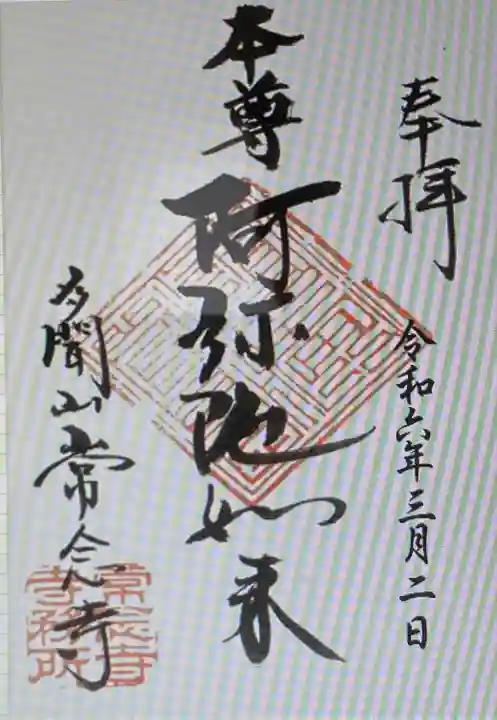 奉拝
令和六年三月二日
本尊
阿弥陀如来
多聞山常念寺
常念寺
寺務所